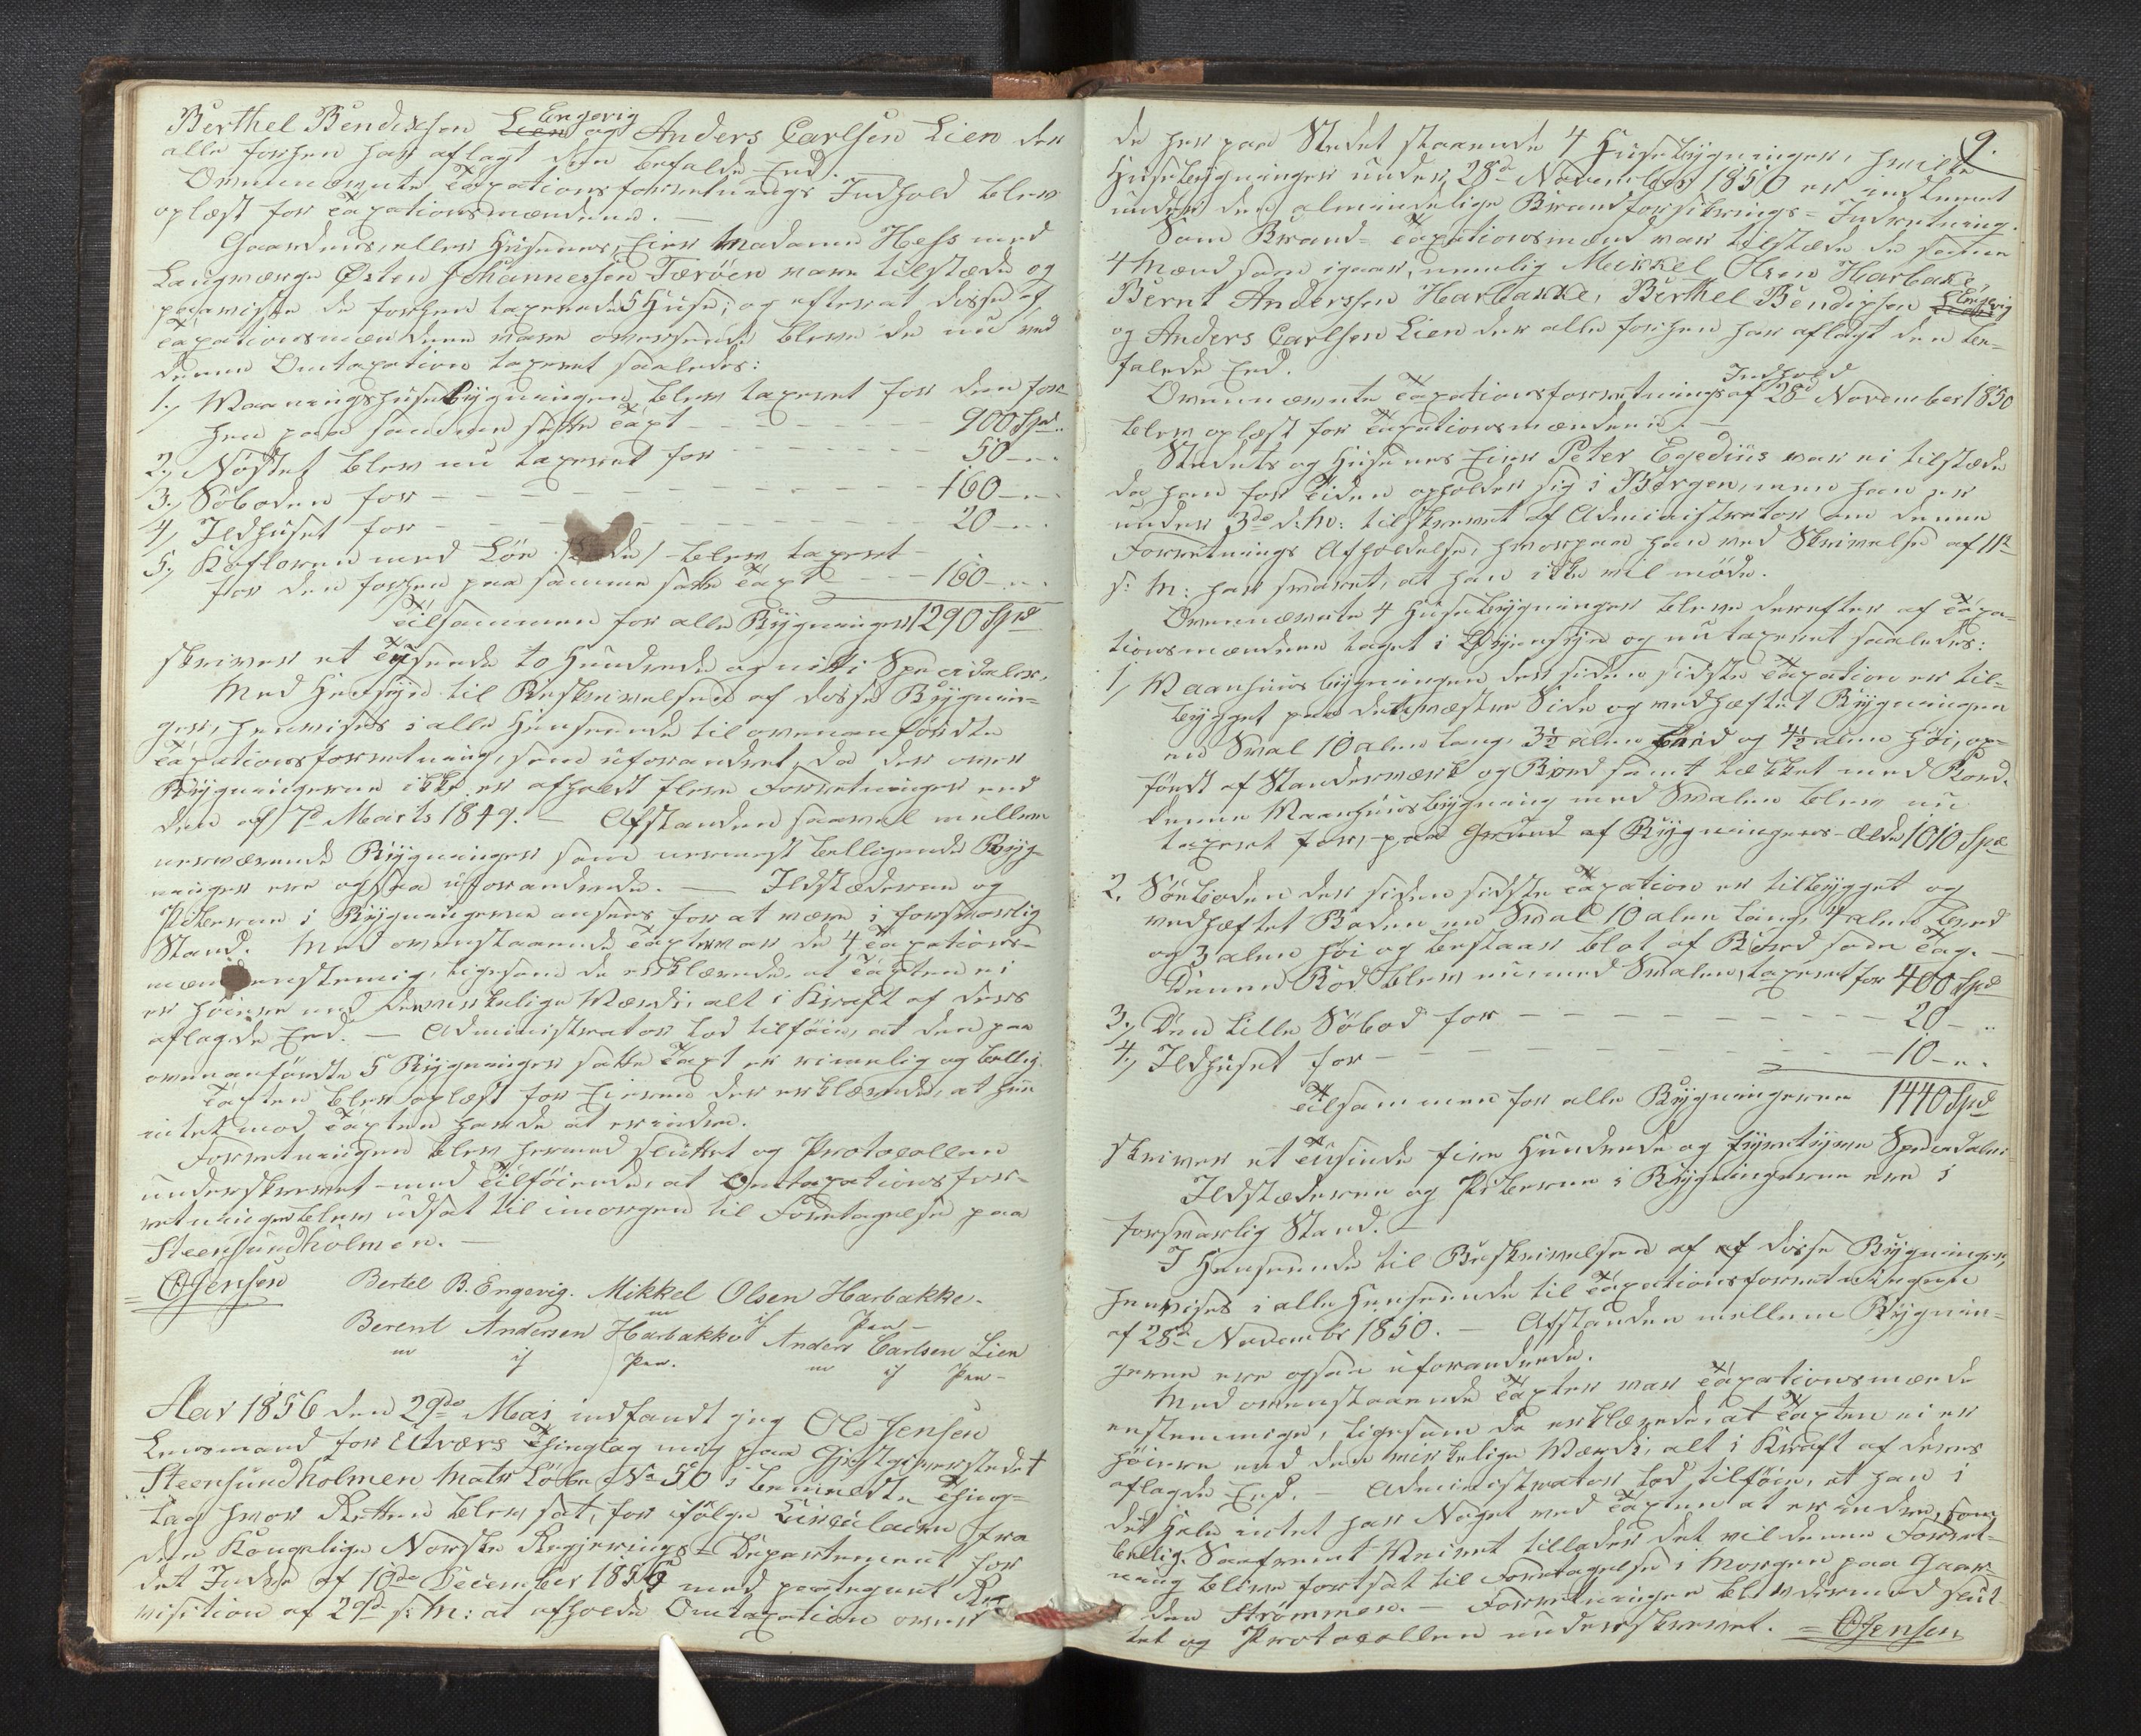 Berthel Bendixsen Lien Engevig og Anders Carlsen Lien der
alle forhen har aflagt den befalede Eed.
Ovennævnte Taxationsforretnings Indhold blev
oplæst for Taxationsmændene. —
Gaardens, eller Husenes, Eier Madame Hess med
Laugværge Østen Johannessen Færöen vare tilstæde og
paaviste de forhen taxerede 5 Huse; og efterat disse af
Taxationsmændene vare overseede bleve de nu ved
denne Omtaxation taxeret saaledes:
1., Vaaningshusebygningen blev taxeret for den for-
hen paa samme satte Taxt - - - 900 Spd.
2., Nöstet blev nu taxeret for - - - 50 — "
3., Söboden for - - - 160 — "
4, Ildhuset for - - - 20 — "
5., Kofloren med Löe blev taxeret
for den forhen paa samme satte Taxt - - 160 — "
Tilsammen for alle Bygninger 1290 Spd
skriver et Tusende to Hundrede og nitti Speciedaler,
Med Hensyn til Beskrivelsen af disse Bygnin-
ger, henvises i alle Henseende til ovenanførdte
Taxationsforretning, som uforandret, da der over
Bygningerne ikke er afholdt flere Forretninger end
den af 7d Marts 1849. — Afstanden saavel mellem
nerværende Bygninger som nermest belliggende Byg-
ninger ere ogsaa uforandrede. — Ildstæderne og
Piberne i Bygningerne ansees for at være i forsvarlig
Stand. Med ovenstaaende Taxter var de 4 Taxations-
mænd enstemig, ligesom de erklærede, at Taxten ei
er höiere end den virkelige Værdi, alt i Kraft af deres
aflagde Eed. — Administrator lod tilföie, at den paa
ovenanfördte 5 Bygninger satte Taxt er rimelig og billig.
Taxten blev oplæst for Eieren der erklærede, at hun
intet mod Taxten havde at erindre.
Forretningen blev hermed sluttet og Protocollen
underskrevet med Tilföiende, at Omtaxationsfor-
retningen blev udsat til imorgen til Foretagelse paa
Steensundholmen. —
OJensen Bertel B. Engevig. Mikkel Olsen Harbakke.
m if Pen —
Berent Andersen Harbakke Anders Carlsen Lien
m if Pen. m if Pen —
Aar 1856 den 29de Mai indfandt jeg Ole Jensen
Lensmand for Utvær's Thinglag mig paa Gjestgiverstedet
Steensundholmen Matr Löbe No 50 i bemeldte Thing-
lag hvor Retten blev sat, for ifölge Circulaire fra
den Kongelige Norske Regjerings-Departement for
det Indre af 10de December 1856 med paategnet Re-
visition af 29d f: M: at afholde Omtaxation over
9.
de her paa Stedet staaende 4 Husebygninger, hvilke
Husebygninger under 28de November 1850 er indlemmet
under den almindelige Brandforsikrings-Indretning.
Som Brand-Taxationsmænd var tilstæde de samme
4 Mænd som igaar, nemlig Meikkel Olsen Harbake,
Bernt Anderssen Harbakke, Berthel Bendixsen Lien Engevig
og Anders Carlsen Lien der alle forhen har aflagt den be-
falede Eed.
Ovennævnte Taxationsforretnings Indhold af 28de November 1850
blev oplæst for Taxationsmændene. —
Stedets og Husenes Eier Peter Egedius var ei tilstæde
da han for Tiden opholder sig i Bergen, men han er
under 3de d: M: tilskrevet af Administrator om denne
Forretnings Afholdelse, hvorpaa han ved Skrivelse af 11te
s: M: har svaret, at han ikke vil möde.
Ovennævnte 4 Husebygninger bleve derefter af Taxa-
tionsmændene taget i Öiensyn og nu taxeret saaledes:
1, Vaanhuusbygningen der siden sidste Taxation er til-
bygget paa den vestre Side og vedhæftet Bygningen
en Sval 10 alen lang, 3½ alen breed og 4½ alen höi, op-
fördt af Standerværk og Bord samt tækket med Bord.
denne Vaanhuusbygning med Svalen blev nu
taxeret for, paa Grund af Bygningens Ælde 1010 Spd
2. Sönboden der siden sidste Taxation er tilbygget og
vedhæftet Boden en Sval 10 alen lang, 4 alen breed
og 3 alen höi og bestaar blot af Bord som Tag. —
Denne Bod blev nu med Svalen taxeret for 400 Spd
3., Den lille Söbod for - - - 20 — "
4., Ildhuset for - - - 10 — "
Tilsammen for alle Bygningerne 1440 Spd
skriver et Tusinde fire Hundrede og fyretyve Speciedaler
Ildstæderne og Piberne i Bygningerne ere i
forsvarlig Stand. —
I Henseende til Beskrivelsen af af disse Bygninger,
henvises i alle Henseende til Taxationsforretningen
af 28de Novembr 1850. — Afstanden mellem Bygnin-
gerne ere ogsaa uforandrede.
Med ovenstaaende Taxter var Taxationsmænde
enstemmige, ligesom de erklærede, at Taxten ei er
höiere end den virkelige Værdi, alt i Kraft af deres
aflagde Eed. — Administrator lod tilföie, at han i
det Hele intet har Noget ved Taxten at erindre, som
billig. Saafremt Veiret tillader det vil denne Forret-
ning blive fortsat til Foretagelse i Morgen paa Gaar-
den Strömmen. — Forretningen blev dermed slut-
tet og Protocollen underskrevet. = OJensen